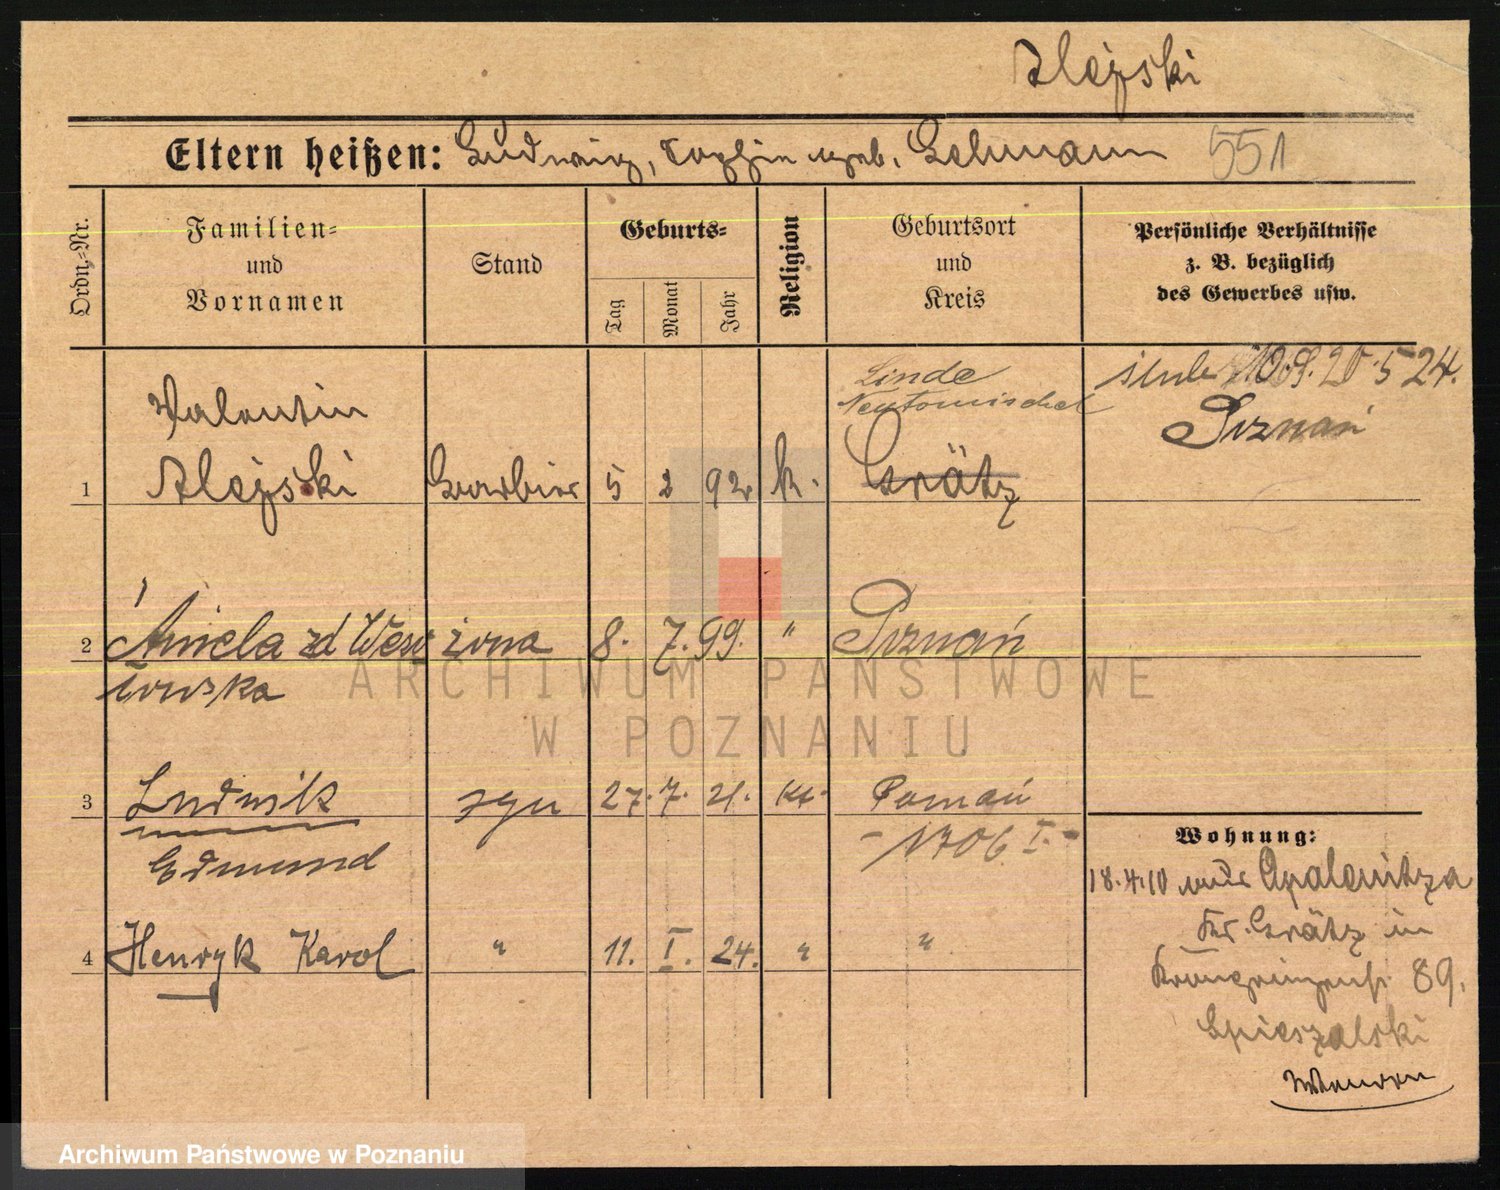 Alejski
Eltern heißen: Ludwig, Sophie geb. Lehmann 551
Ordn.-Nr.
Familien-
und
Vornamen
Stand
Geburts-
Tag
Monat
Jahr
Religion
Geburtsort
und
Kreis
Persönliche Verhältnisse
z. B. bezüglich
des Gewerbes usw.
Linde
Neutomischel
ślub 20.5 24.
Poznań
Valentin
1 Alejski Barbier 5 2 92 k. Grätz
2 Aniela zd Weso żona 8. 7. 99. " Poznań
łowska
3 Ludwik syn 27. 7. 21. kt. Poznań
Edmund - 1706 I. -
4 Henryk Karol " 11. I. 24. " "
Wohnung:
18.4.10 aus Opalenitza
Kr. Grätz in
Kronprinzenstr. 89.
ARCHIWUM PAŃSTWOWE
W POZNANIU
Archiwum Państwowe w Poznaniu